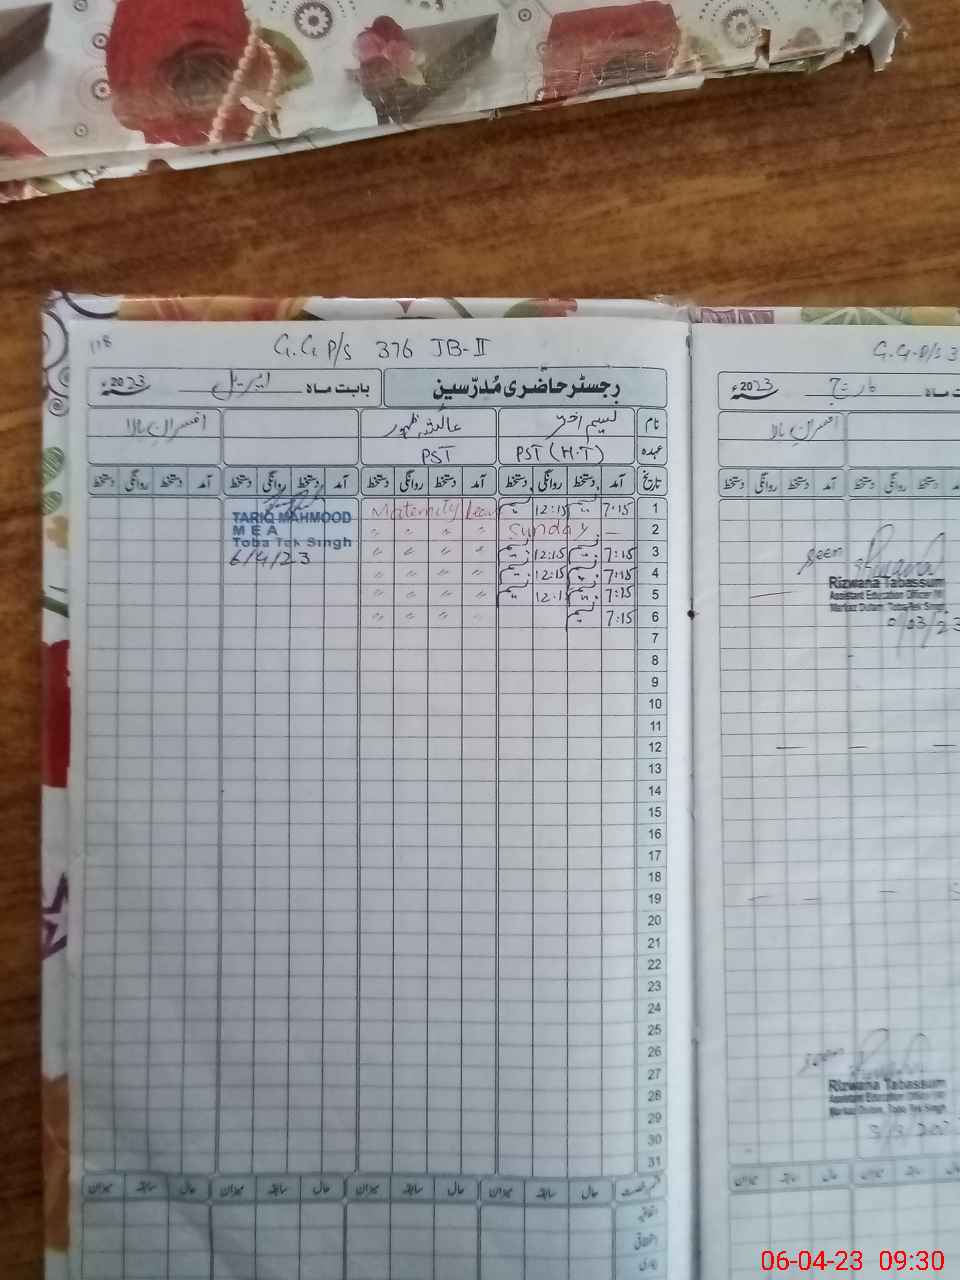 118
G.G P/S 376 JB-II
رجسٹر حاضری مُدرّسین
بابت ماہ اپریل 2023ء
نام
نسیم اختر
عائشہ ظہور
افسران بالا
عہدہ
PST (H.T)
PST
تاریخ آمد دستخط روانگی دستخط آمد دستخط روانگی دستخط آمد دستخط روانگی دستخط آمد دستخط روانگی دستخط
1 7:15 12:15 Maternity Leave
2 — Sunday " " " "
3 7:15 12:15 " " " "
4 7:15 12:15 " " " "
5 7:15 12:15 " " " "
6 7:15 " " "
7
8
9
10
11
12
13
14
15
16
17
18
19
20
21
22
23
24
25
26
27
28
29
30
31
TARIQ MAHMOOD
M E A
Toba Tek Singh
6/4/23
حال سابقہ میزان حال سابقہ میزان حال سابقہ میزان حال سابقہ میزان
اتفاقیہ
G.G.P/S 3
ماہ مارچ 2023ء
افسران بالا
آمد دستخط روانگی دستخط
Seen
Rizwana Tabassum
Assistant Education Officer
Markaz Dulam, Toba Tek Singh
Seen
Rizwana Tabassum
Assistant Education Officer
Markaz Dulam, Toba Tek Singh
حال سابقہ میزان
06-04-23 09:30